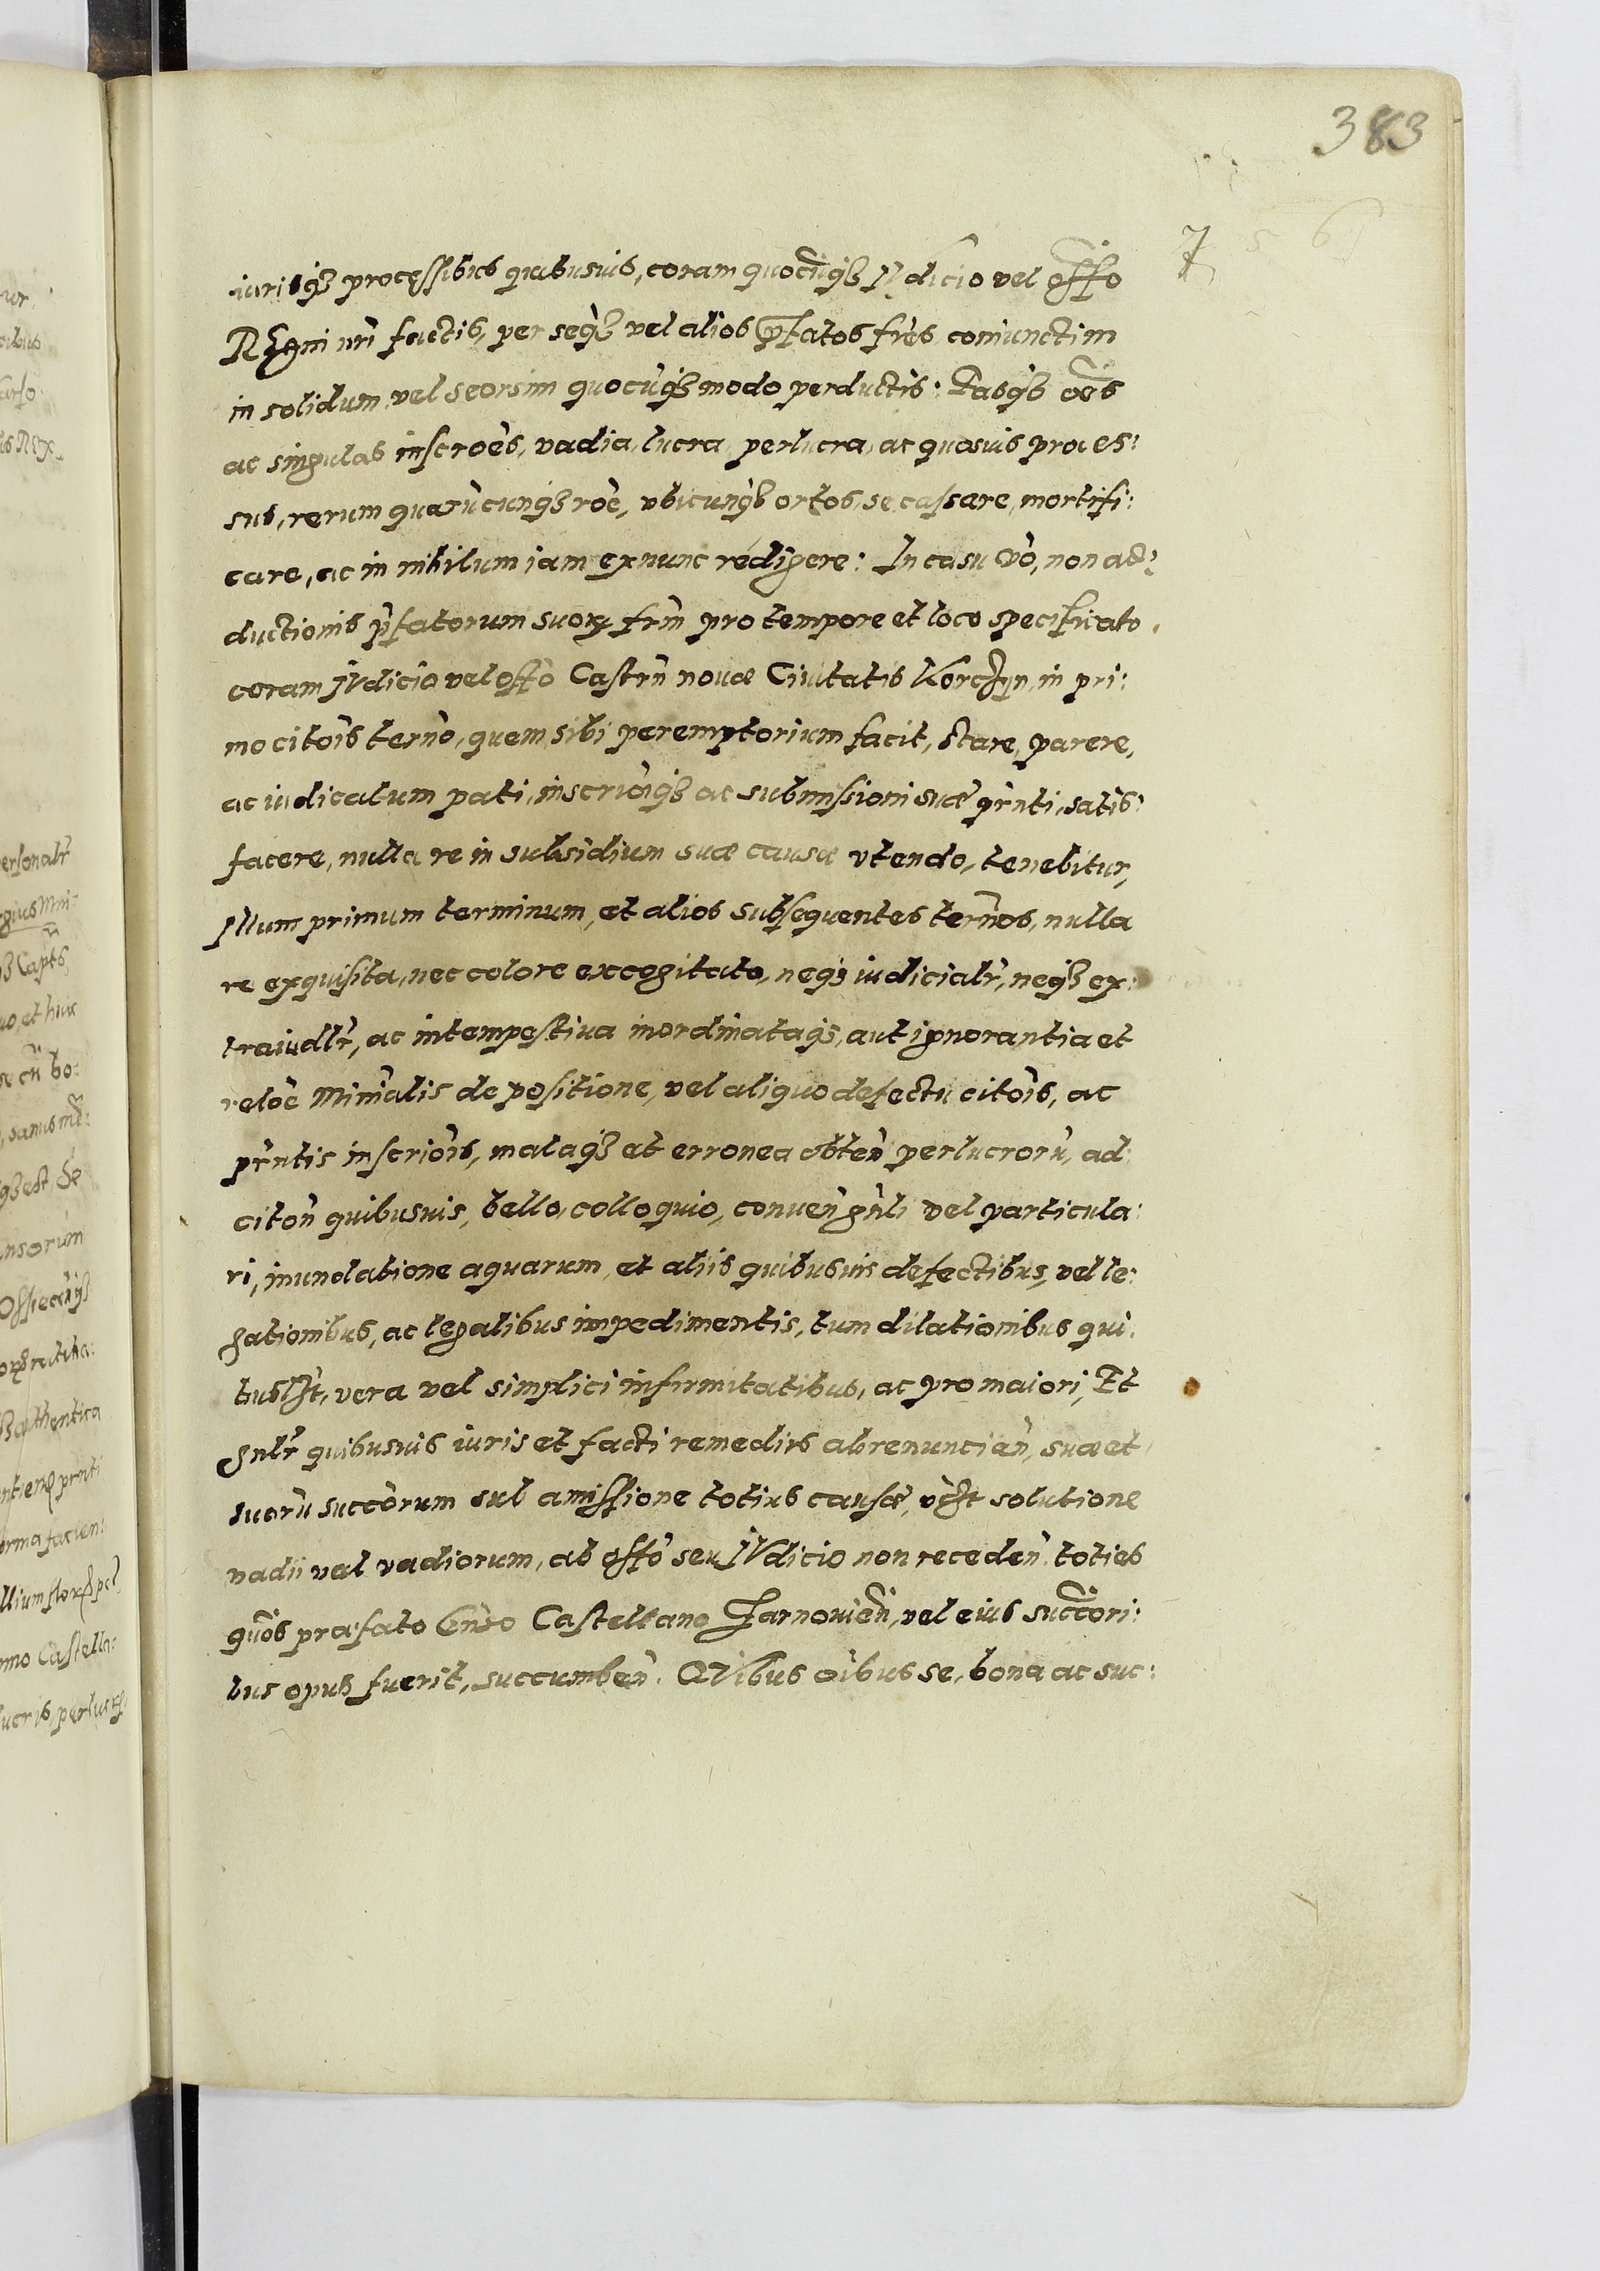 383
7
iurisq3 processibus quibusuis, coram quocũq3 Iudicio vel offo
REgni nri factis, per seq3 vel alios pfatos fres coniunctim
in solidum vel seorsim quocũq3 modo perductis: Easq3 oẽs
ac singulas inscroẽs, vadia, lucra, perlucra, ac quosuis proces:
sus, rerum quarũcunq3 roẽ, vbicunq3 ortos, se cassare, mortifi:
care, ac in nihilum iam exnunc redigere: In casu vò, non ad:
ductionis pfatorum suorꝝ frm pro tempore et loco specificato
coram IVdicio vel offo Castrñ nouæ Ciuitatis Korczyn, in pri:
mo citoĩs terno, quem sibi peremptorium facit, stare, parere,
ac iudicatum pati, inscrioniq3 ac submissioni suæ prñti, satis:
facere, nulla re in subsidium suæ causæ vtendo, tenebitur,
Illum primum terminum, et alios subsequentes terños, nulla
re exquisita, nec colore excogitato, neq3 iudicialr, neq3 ex:
traiudlr, ac intempestiua inordinataq3, aut ignorantia et
reloẽ Minrialis depositione, vel aliquo defectu citoĩs, ac
prñtis inscrioĩs, malaq3 et erronea obteñ perlucrorũ, ad
citoñ quibusuis, bello, colloquio, conueñ gñli vel particula:
ri, inundatione aquarum, et aliis quibusuis defectibus, vel le:
gationibus, ac legalibus impedimentis, tum dilationibus qui:
busl3t, vera vel simplici infirmitatibus, ac pro maiori, Et
gnlr quibusuis iuris et facti remediis abrenuncian, suæ et
suorũ succorum sub amissione totius causæ, v3t solutione
vadii vel vadiorum, ab offo seu IVdicio non recedeñ. toties
quoĩs præfato Gnso Castellano Tarnouieñ, vel eius succori:
bus opus fuerit, succumbeñ. QVibus oĩbus se, bona ac suc: